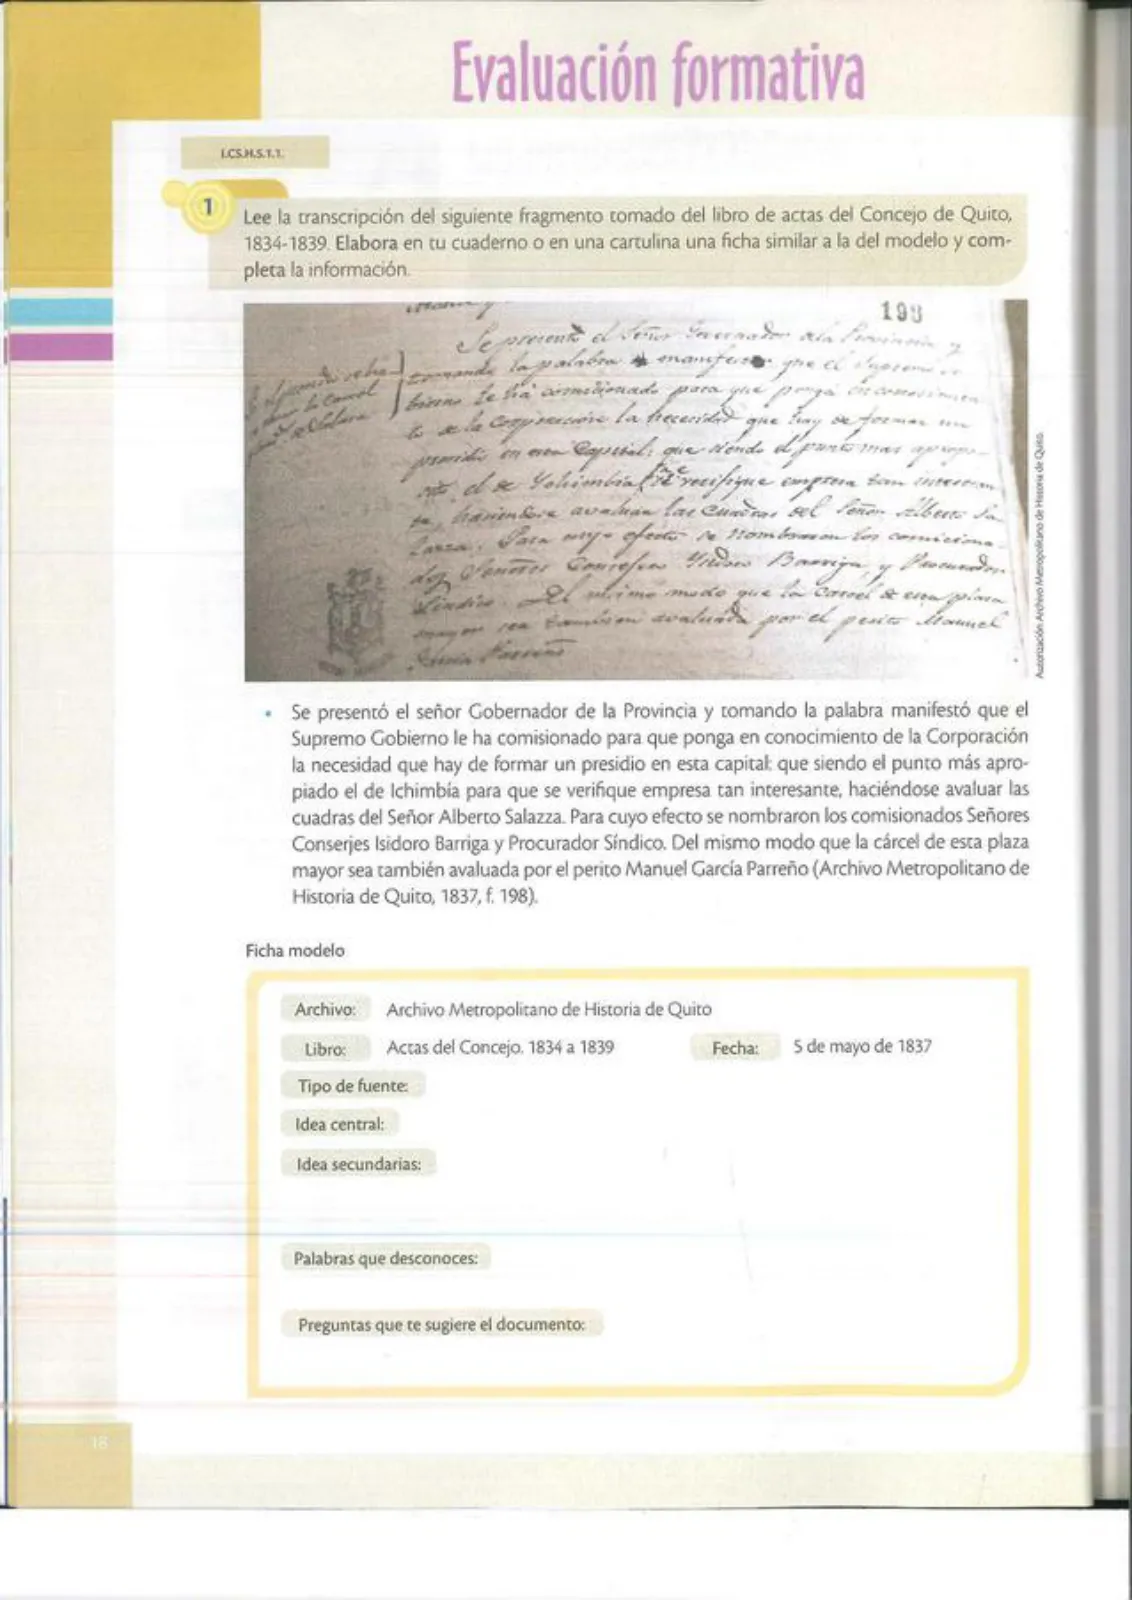 Evaluación formativa
I.CS.H.5.1.1.
1
Lee la transcripción del siguiente fragmento tomado del libro de actas del Concejo de Quito,
1834-1839. Elabora en tu cuaderno o en una cartulina una ficha similar a la del modelo y com-
pleta la información.
198
Se presentó el Señor Governador de la Provincia y
tomando la palabra manifestó que el Supremo Go-
bierno le ha comisionado para que ponga en conocimien-
to de la Corporación la necesidad que hay de formar un
presidio en esta Capital: que siendo el punto mas apropi-
el de verifique empresa tan interesan-
te, haciendose avaluar las Cuadras del Señor Alberto Sa-
Para cuyo efecto se nombraron los comiciona-
dos Señores Isidoro Barriga y Procurador
Síndico. Del mismo modo que la Carcel de esta plaza
mayor sea tambien avaluada por el perito Manuel
Autorización Archivo Metropolitano de Historia de Quito.
• Se presentó el señor Gobernador de la Provincia y tomando la palabra manifestó que el
Supremo Gobierno le ha comisionado para que ponga en conocimiento de la Corporación
la necesidad que hay de formar un presidio en esta capital: que siendo el punto más apro-
piado el de Ichimbía para que se verifique empresa tan interesante, haciéndose avaluar las
cuadras del Señor Alberto Salazza. Para cuyo efecto se nombraron los comisionados Señores
Conserjes Isidoro Barriga y Procurador Síndico. Del mismo modo que la cárcel de esta plaza
mayor sea también avaluada por el perito Manuel García Parreño (Archivo Metropolitano de
Historia de Quito, 1837, f. 198).
Ficha modelo
Archivo: Archivo Metropolitano de Historia de Quito
Libro: Actas del Concejo. 1834 a 1839 Fecha: 5 de mayo de 1837
Tipo de fuente:
Idea central:
Idea secundarias:
Palabras que desconoces:
Preguntas que te sugiere el documento:
16